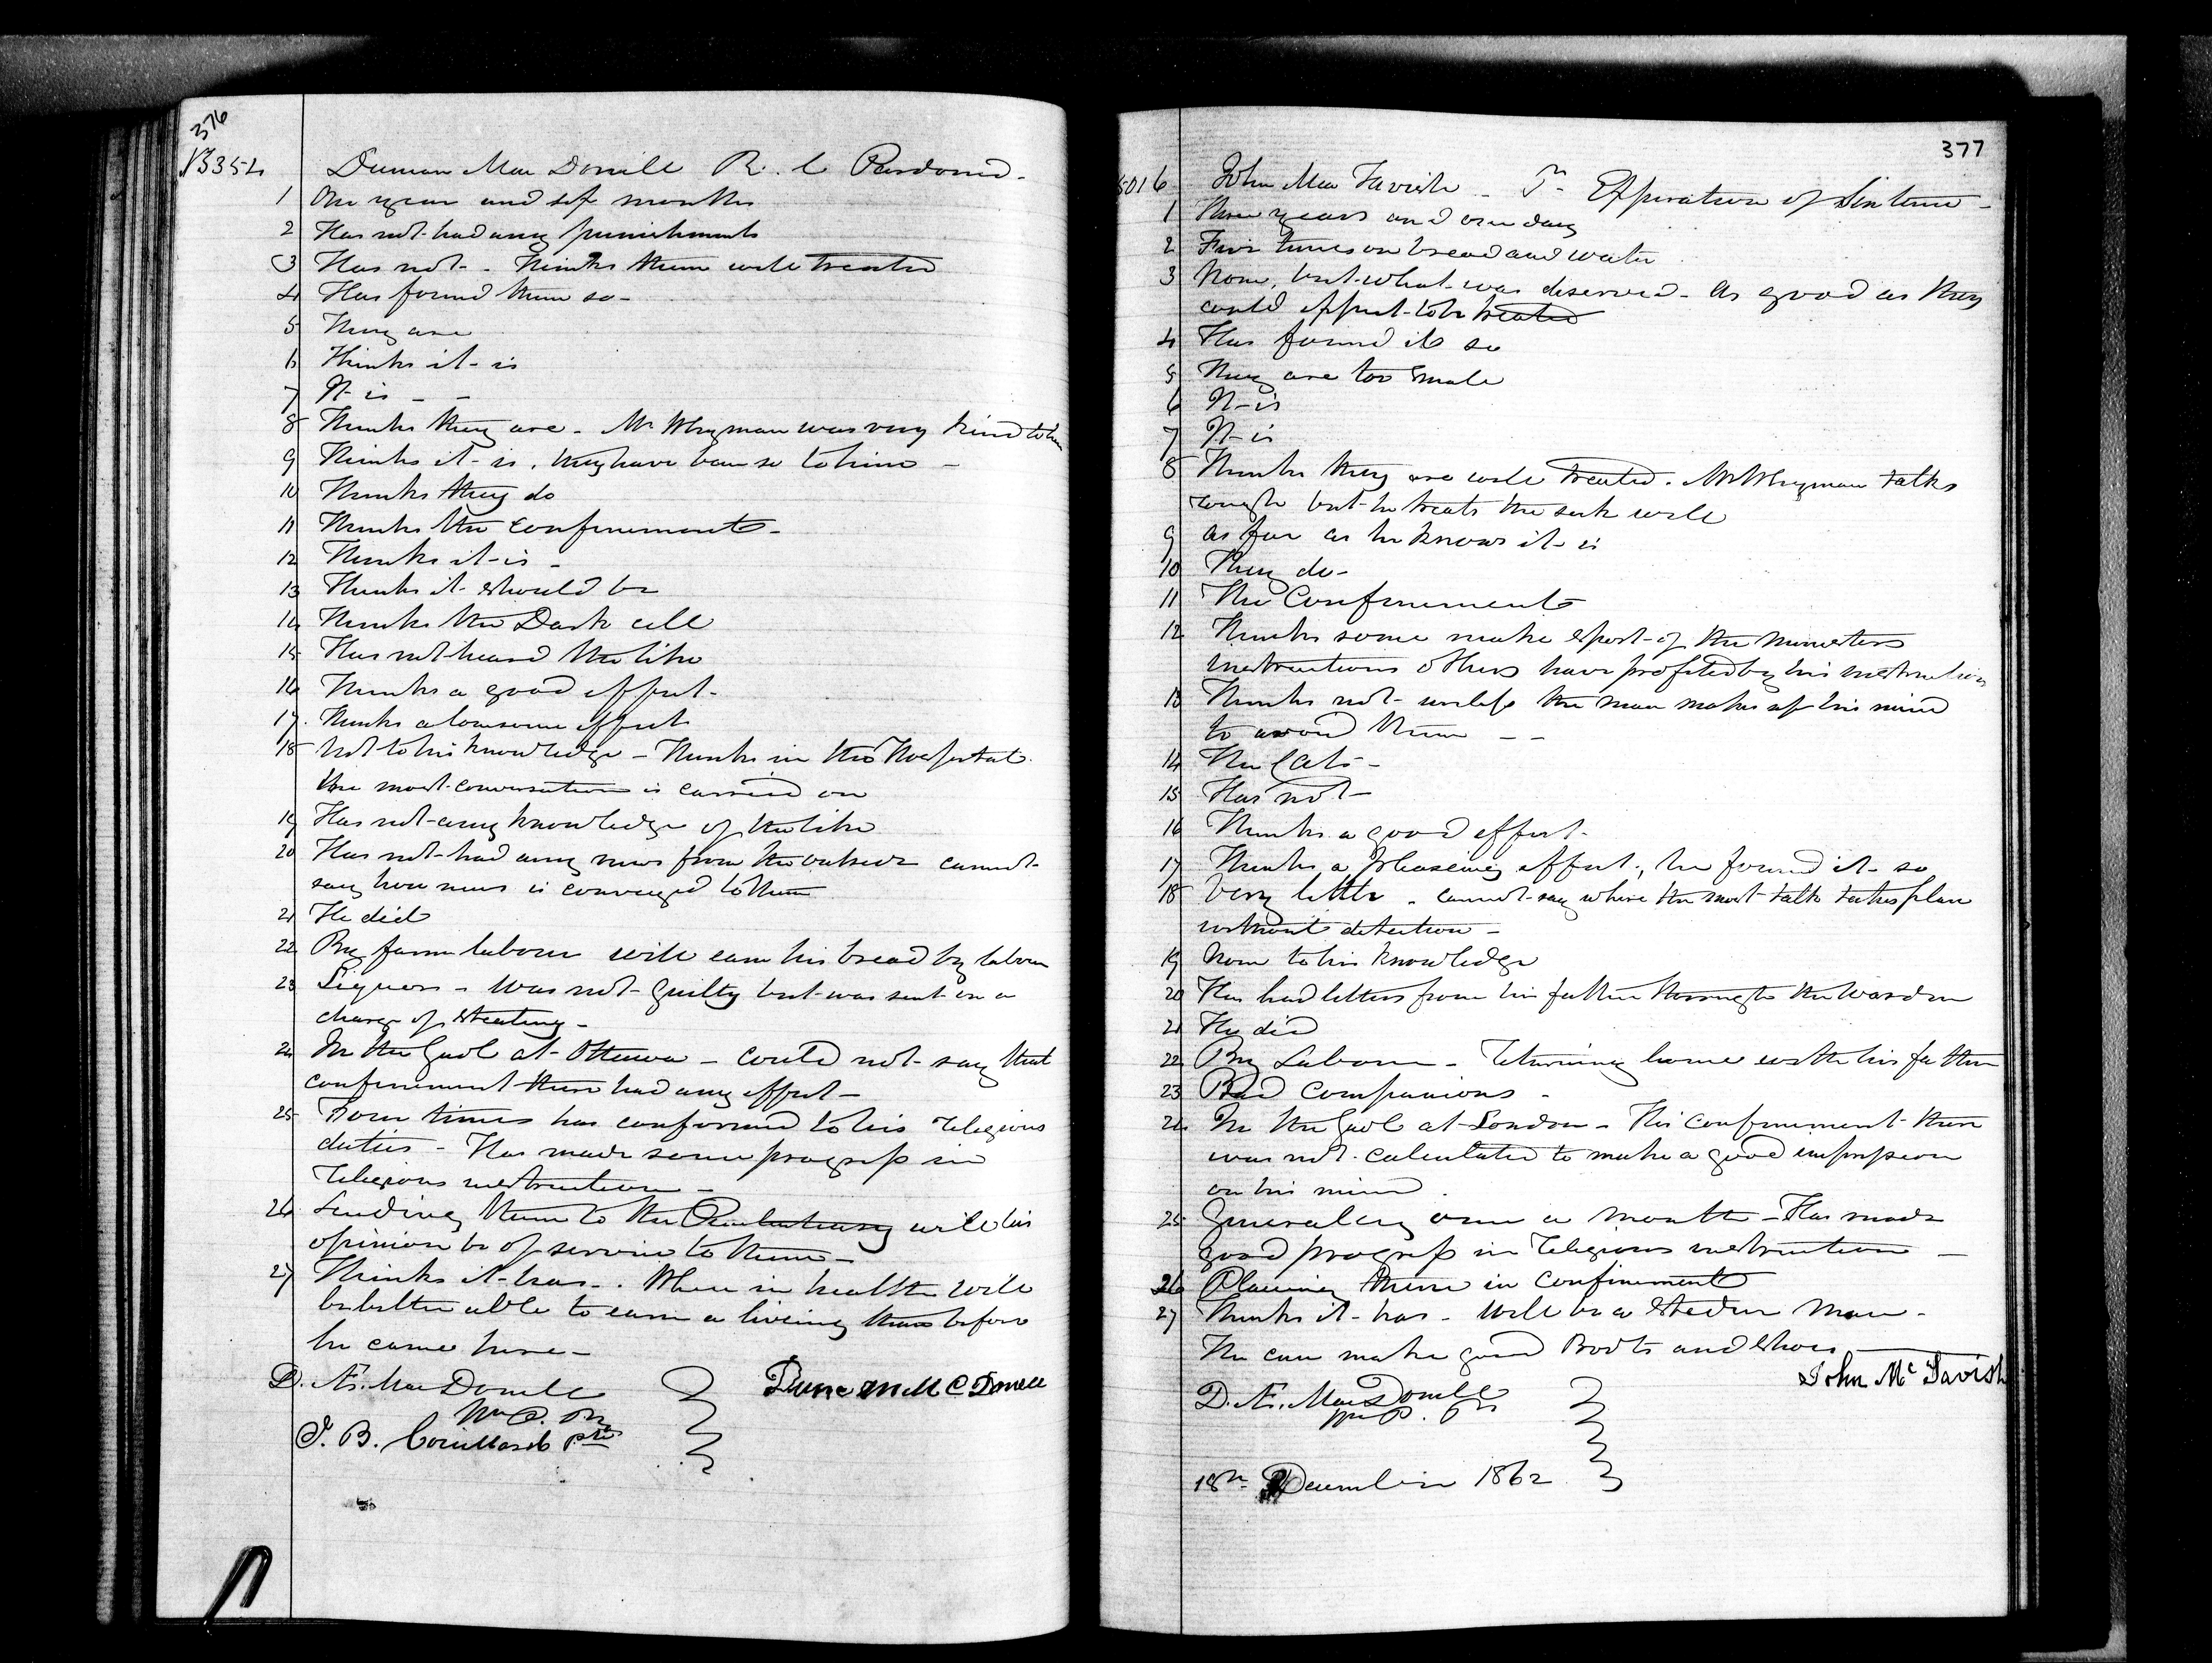 376
Duncan MacDonell R. C Pardoned.
1 One year and six months
2 Has not had any punishments
3 Has not - Thinks them well treated
4 Has found them so -
5 They are
6 Thinks it is
7 It is - -
8 Thinks they are - Mr Whyman was very kind to him
9 Thinks it is, they have been so to him -
10 Thinks they do
11 Thinks the confinement -
12 Thinks it is -
13 Thinks it should be
14 Thinks the Dark cell
15 Has not heard the like
16 Thinks a good effect -
17 Thinks a lonesome effect
18 Not to his knowledge - Thinks in the Hospital
the most conversation is carried on
19 Has not any knowledge of the like
20 Has not had any news from the outside cannot
say how news is conveyed to them
21 He did
22 By farm labour will earn his bread by labour
23 Liquor - Was not guilty but was sent on a
charge of stealing -
24 In the Gaol at Ottawa - could not say that
confinement there had any effect -
25 Four times has conformed to his religious
duties - Has made some progress in
religious instruction -
26 Sending them to the Penitentiary will his
opinion be of service to them -
27 Thinks it has - . When in health will
be better able to earn a living than before
he came here -
D. Æ. MacDonell
J. B.
377
5016 John MacTavish - Pn Expiration of Sentence -
1 Three years and one day
2 Five times on bread and water
3 None, but what was deserved - As good as they
could expect to be treated
4 Has found it so
5 They are too small
6 It is
7 It is
8 Thinks they are well treated. Mr Whyman talks
rough but he treats the sick well
9 as far as he knows it is
10 They do -
11 The Confinement
12 Thinks some make sport of the Ministers
instructions others have profited by his instructions
13 Thinks not - unless the man makes up his mind
to avoid them - -
14 The Cats -
15 Has not -
16 Thinks a good effect -
17 Thinks a pleasing effect, he found it so
18 Very little . cannot say where the most talk takes place
without detection -
19 None to his knowledge
20 Has had letters from his father through the Warden
21 He did
22 By Labour - Returning home with his father
23 Bad Companions -
24 In the Gaol at London - His confinement there
was not calculated to make a good impression
on his mind .
25 Generally once a month - Has made
good progress in religious instruction -
26 Placing them in confinement
27 Thinks it has - Will be a steadier Man -
He can make good Boots and Shoes
John McTavish
D. Æ. MacDonell
18th December 1862